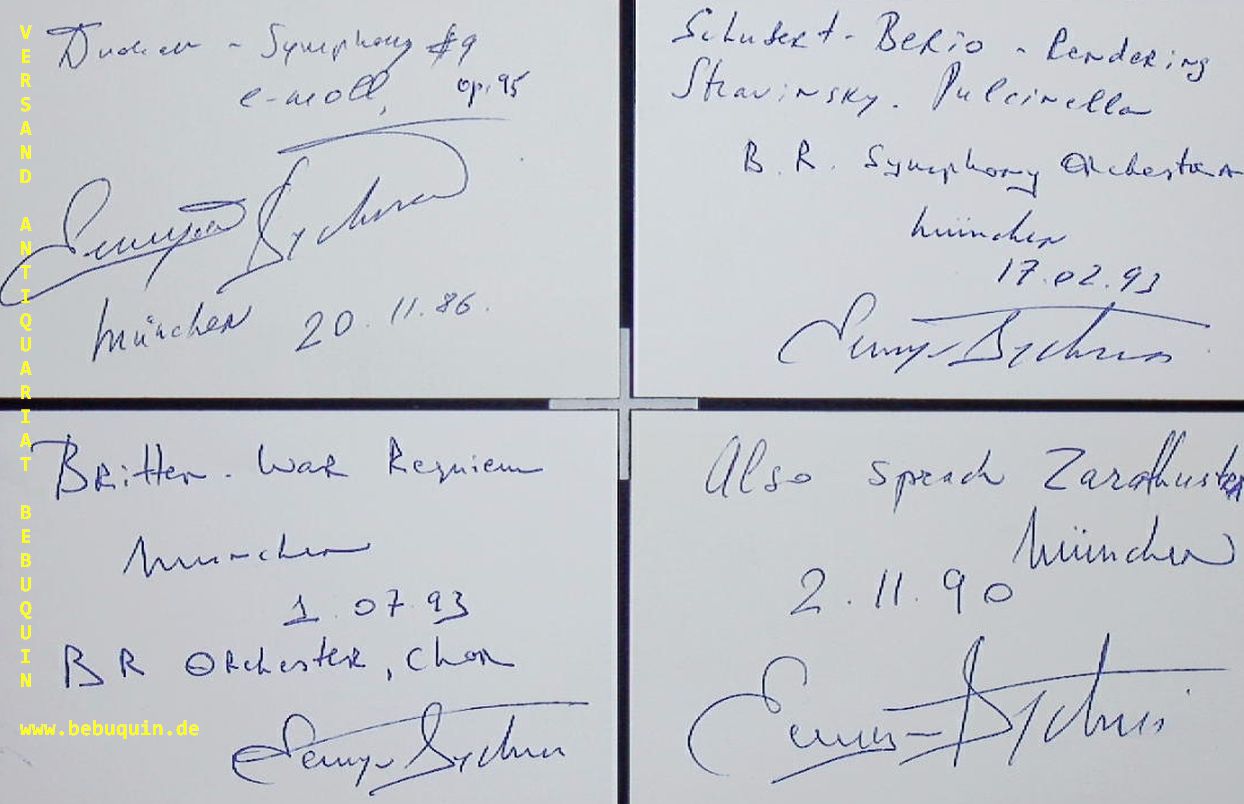 Dvorak - Symphony #9
e-moll, op. 95
Semyon Bychkov
München 20.11.86.
Schubert - Berio - Rendering
Stravinsky. Pulcinella
B. R. Symphony Orchestra
München
17.02.93
Semyon Bychkov
Britten - War Requiem
München
1.07.93
BR Orchester, Chor
Semyon Bychkov
Also sprach Zarathustra
München
2.11.90
Semyon Bychkov
VERSAND ANTIQUARIAT BEBUQUIN
www.bebuquin.de